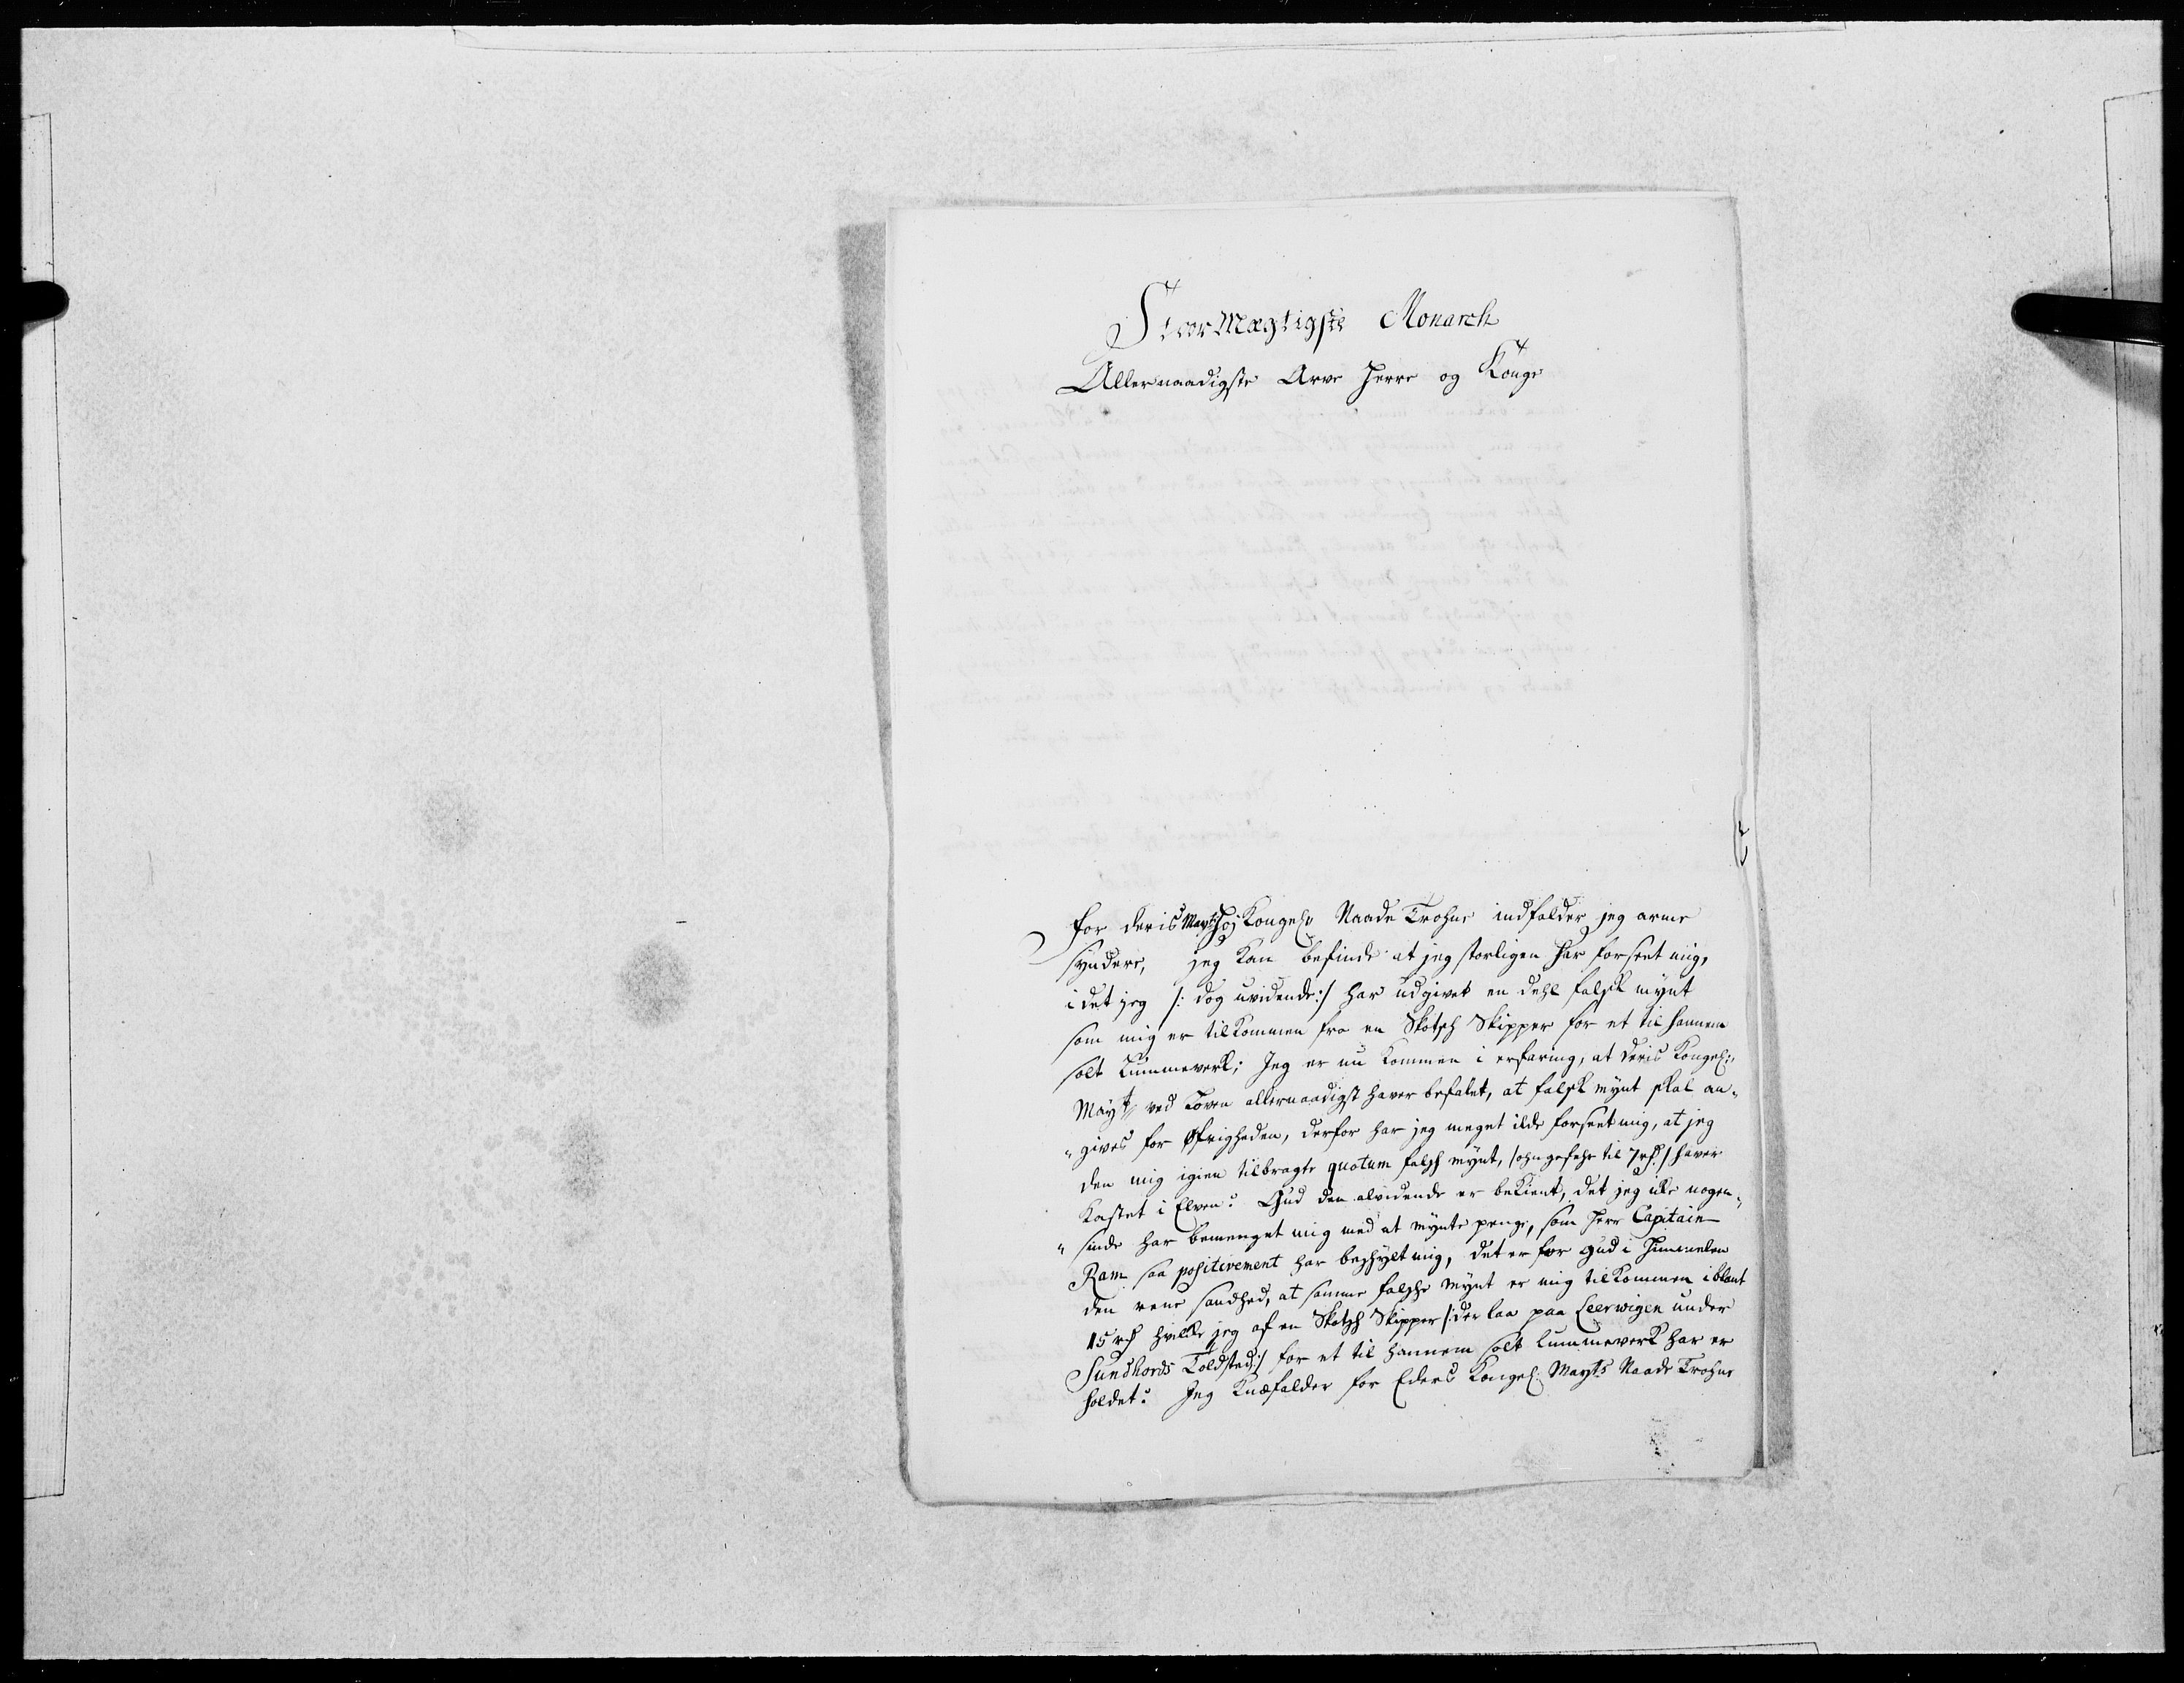 StorMægtigste Monarch
Allernaadigste Arve Herre og Konge
for deris Mayts Høj Kongel: Naade Trohne indfalder jeg arme
syndere, jeg kan befinde at jeg storligen har forseet mig,
i det jeg /: dog uvidende:/ har udgivet en dehl falsk mynt
som mig er tilkommen fra en Skotsh Skipper for et til hannem
solt Lummeverk; Jeg er nu kommen i erfaring, at deris Kongel:
Mayt: ved Loven allernaadigst haver befalet, at falsk mynt skal an„
„gives for Øfrigheden, derfor har jeg meget ilde forseet mig, at jeg
den mig igien tilbragte quotum falsh mynt, /ohngefehr til 7 rd:/ haver
kastet i Elven: Gud den alvidende er bekient, det jeg ikke nogen„
„sinde har bemenget mig med at mynte penge, som Herr Capitain
Ram saa positivement har beshylt mig, det er for Gud i Himmelen
den rene sandhed, at samme falshe mynt er mig tilkommen iblant
15 rd hvilke jeg af en Skotsh Skipper /: der laa paa Leerwigen under
Sundhords Toldsted:/ for et til hannem solt Lummeverk har er
holdet: Jeg Knæfalder for Eders Kongel: Mayts Naade Trohne